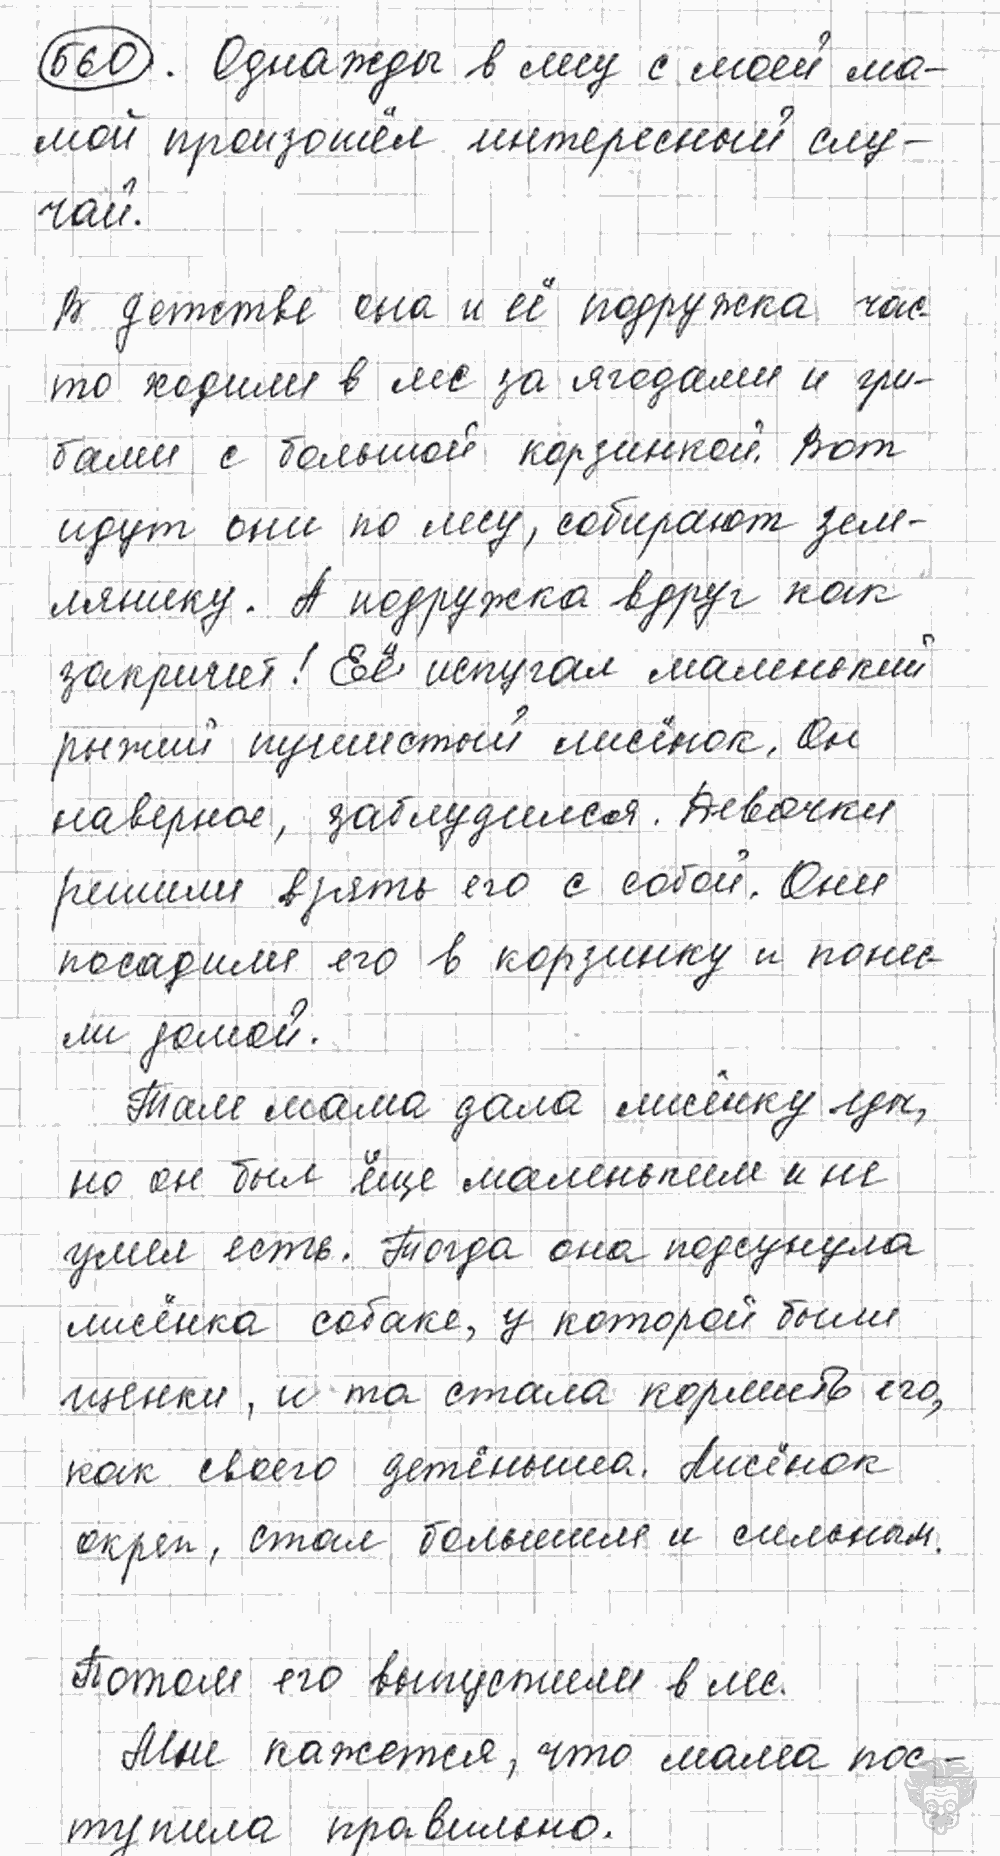 560. Однажды в лесу с моей ма-
мой произошёл интересный слу-
чай.
В детстве она и её подружка час-
то ходили в лес за ягодами и гри-
бами с большой корзинкой. Вот
идут они по лесу, собирают зем-
лянику. А подружка вдруг как
закричит! Её испугал маленький
рыжий пушистый лисёнок. Он
наверное, заблудился. Девочки
решили взять его с собой. Они
посадили его в корзинку и понес-
ли домой.
Там мама дала лисёнку еды,
но он был ёще маленьким и не
умел есть. Тогда она подсунула
лисёнка собаке, у которой были
щенки, и та стала кормить его,
как своего детёныша. Лисёнок
окреп, стал большим и сильным.
Потом его выпустили в лес.
Мне кажется, что мама пос-
тупила правильно.